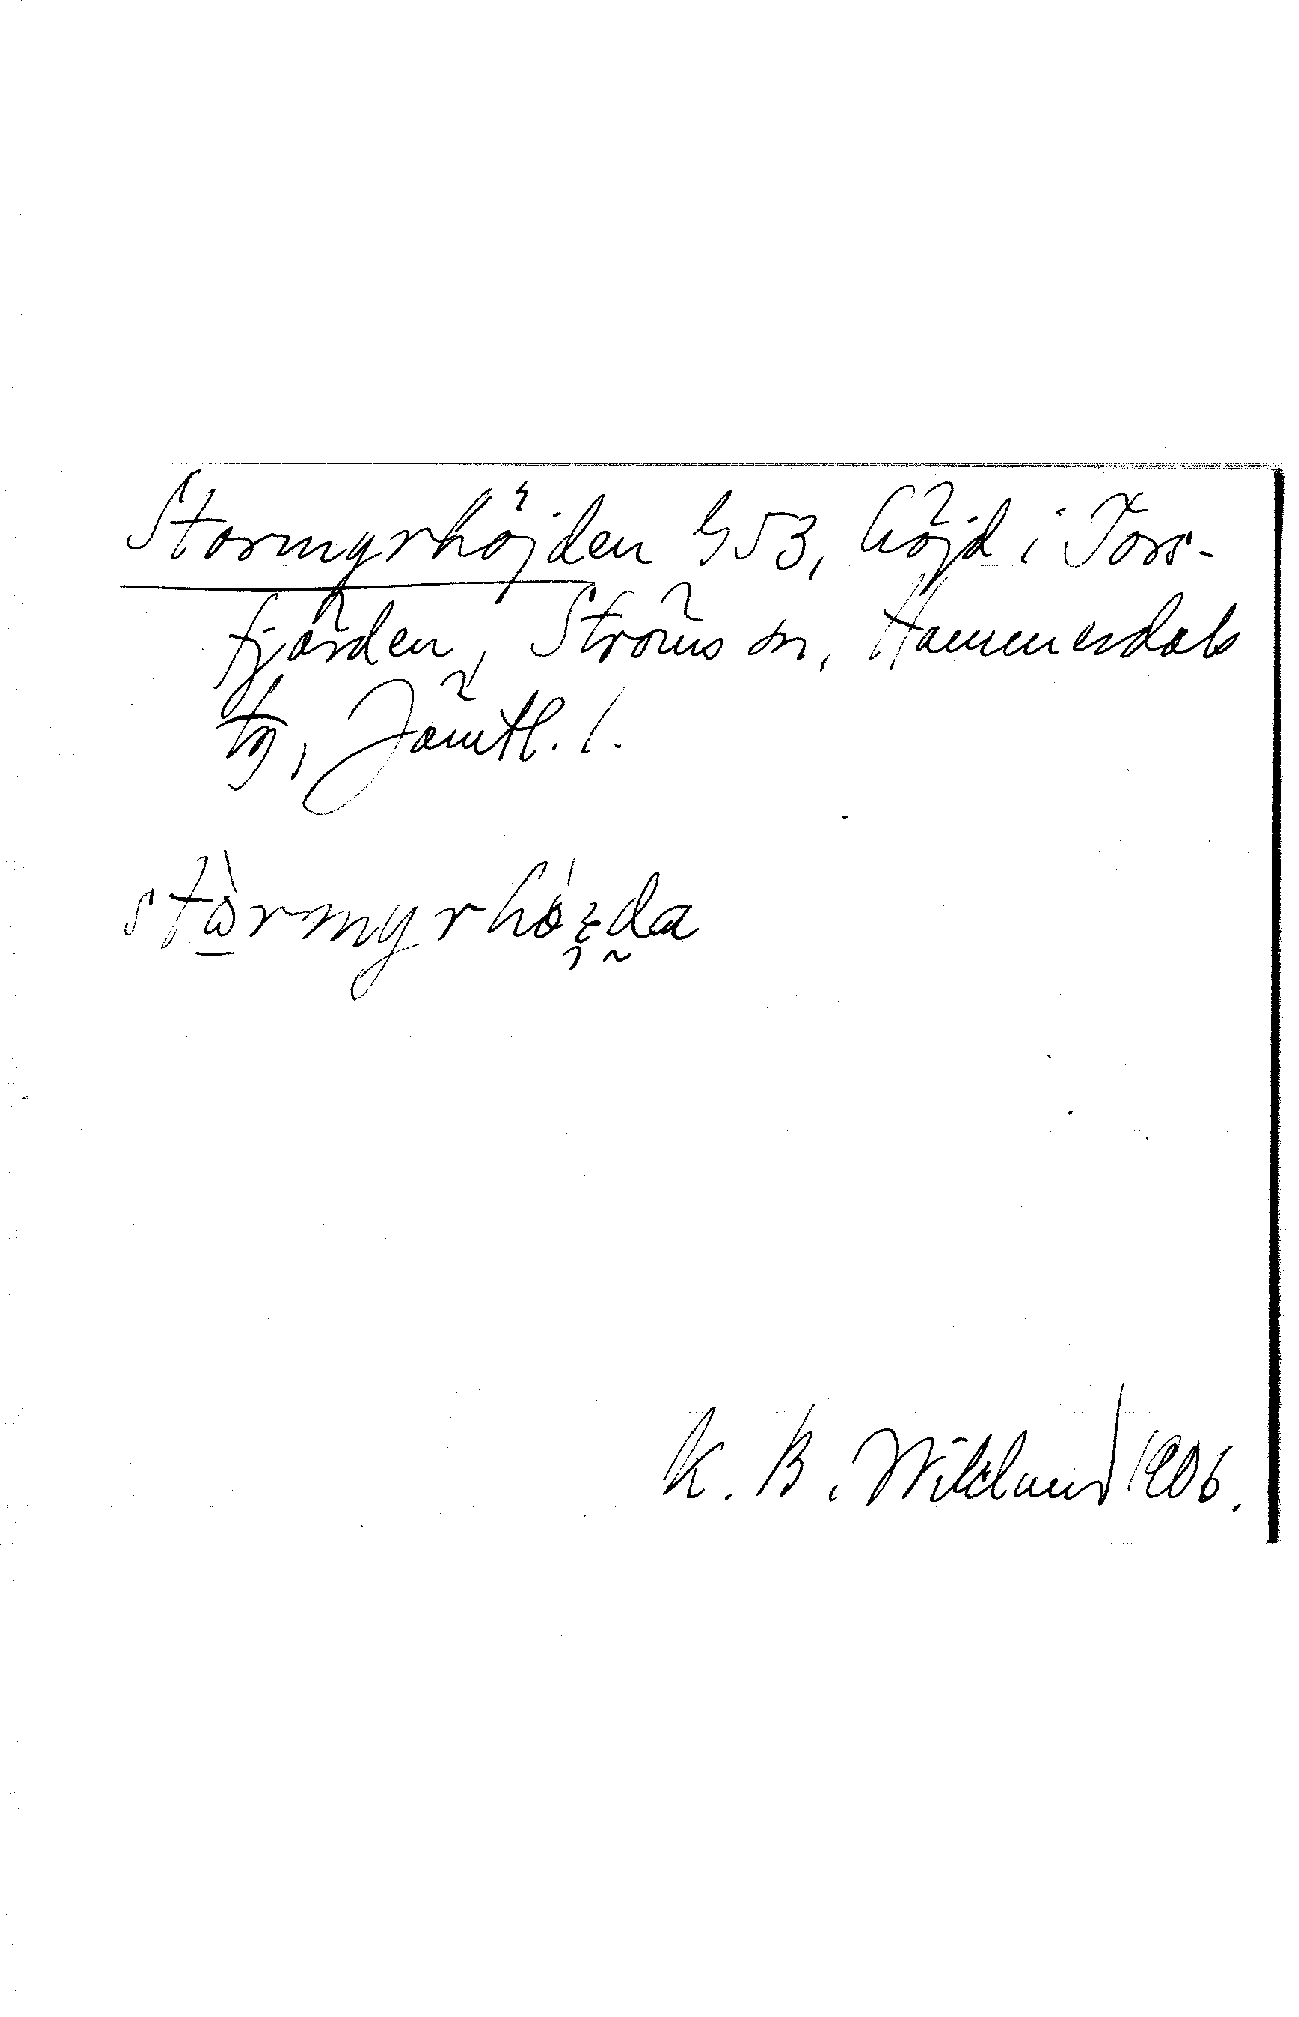 Stormyrhöjden 453, höjd i Tors-
fjärden, Ströms sn, Hammerdals
tg, Jämtl. l.
stὼ̲rmyrhǿi̯da
K. B. Wiklund 1906.